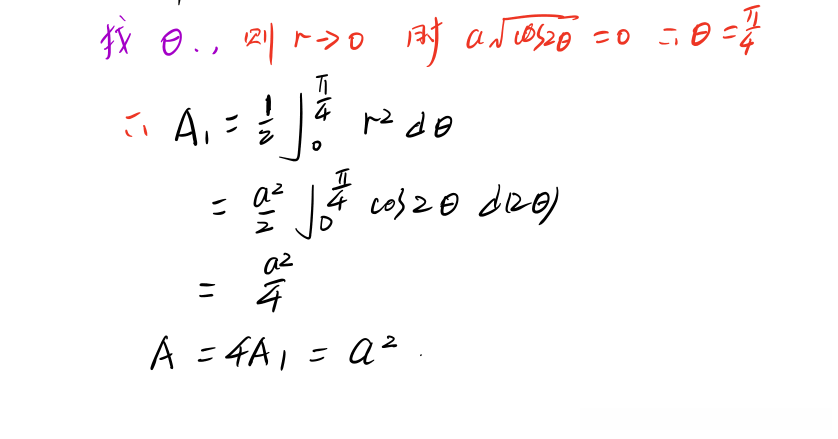 找 θ., 则 r→0 时 a√cos2θ = 0 ∴ θ = π/4
∴ A₁ = 1/2 ∫₀^(π/4) r² dθ
= a²/2 ∫₀^(π/4) cos2θ d(2θ)
= a²/4
A = 4A₁ = a² .